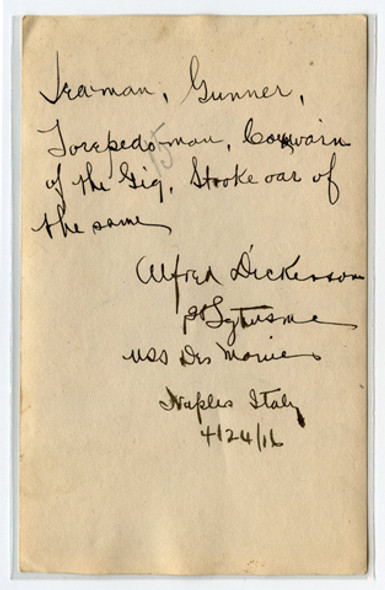 Seaman, Gunner,
Torepedo-man, Coxwain
of the Gig, Stroke oar of
the same
15
Alfred Dickenson
Sgt USMC
USS Des Moines
Naples Italy
4/24/16